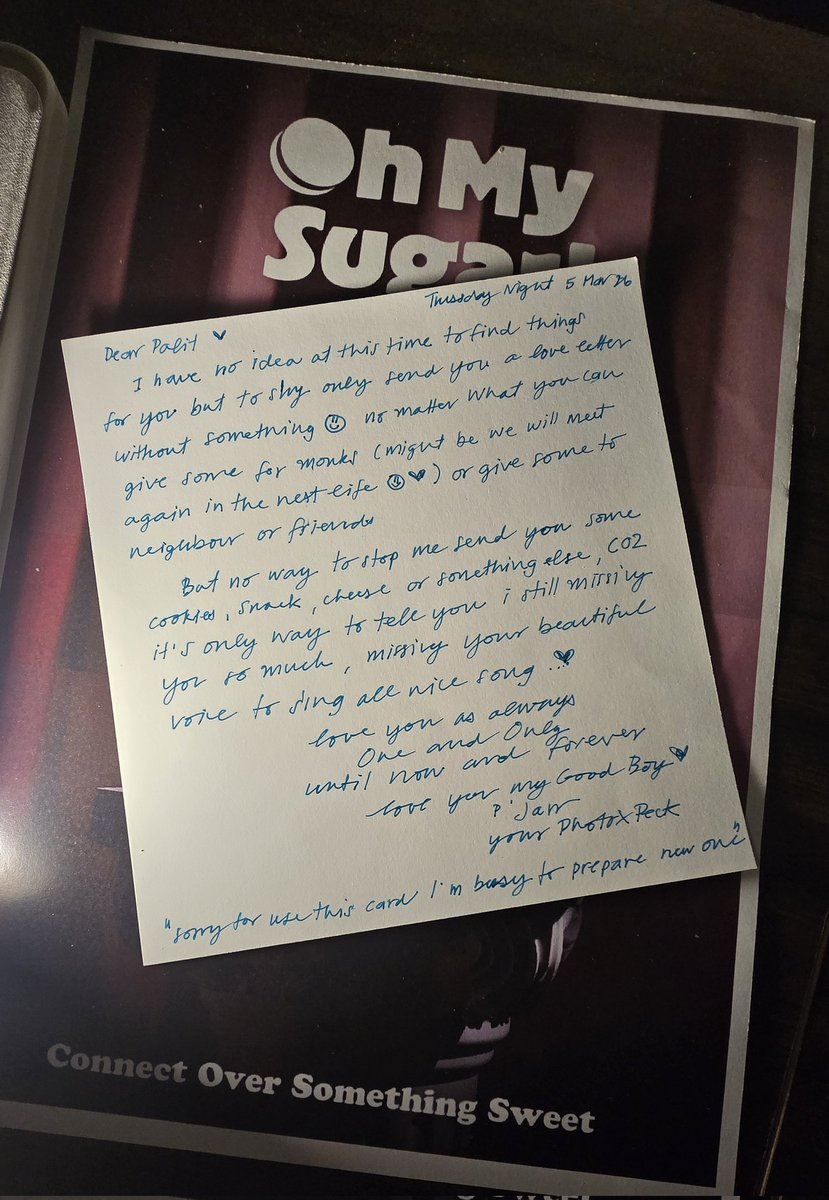 Oh My
Sugar!
Tuesday Night 5 Mar 26
Dear Palit ♥
I have no idea at this time to find things
for you but to shy only send you a love letter
without something ☺ no matter what you can
give some for monks (might be we will meet
again in the next life ☺♥) or give some to
neighbour or friends
But no way to stop me send you some
cookies, snack, cheese or something else, COZ
it's only way to tell you i still missing
you so much, missing your beautiful
voice to sing all nice song ...♥
love you as always
One and Only
until now and forever
love you my Good Boy ♥
P' Jarr
your PhotoxPeck
"sorry for use this card I'm busy to prepare new one"
Connect Over Something Sweet